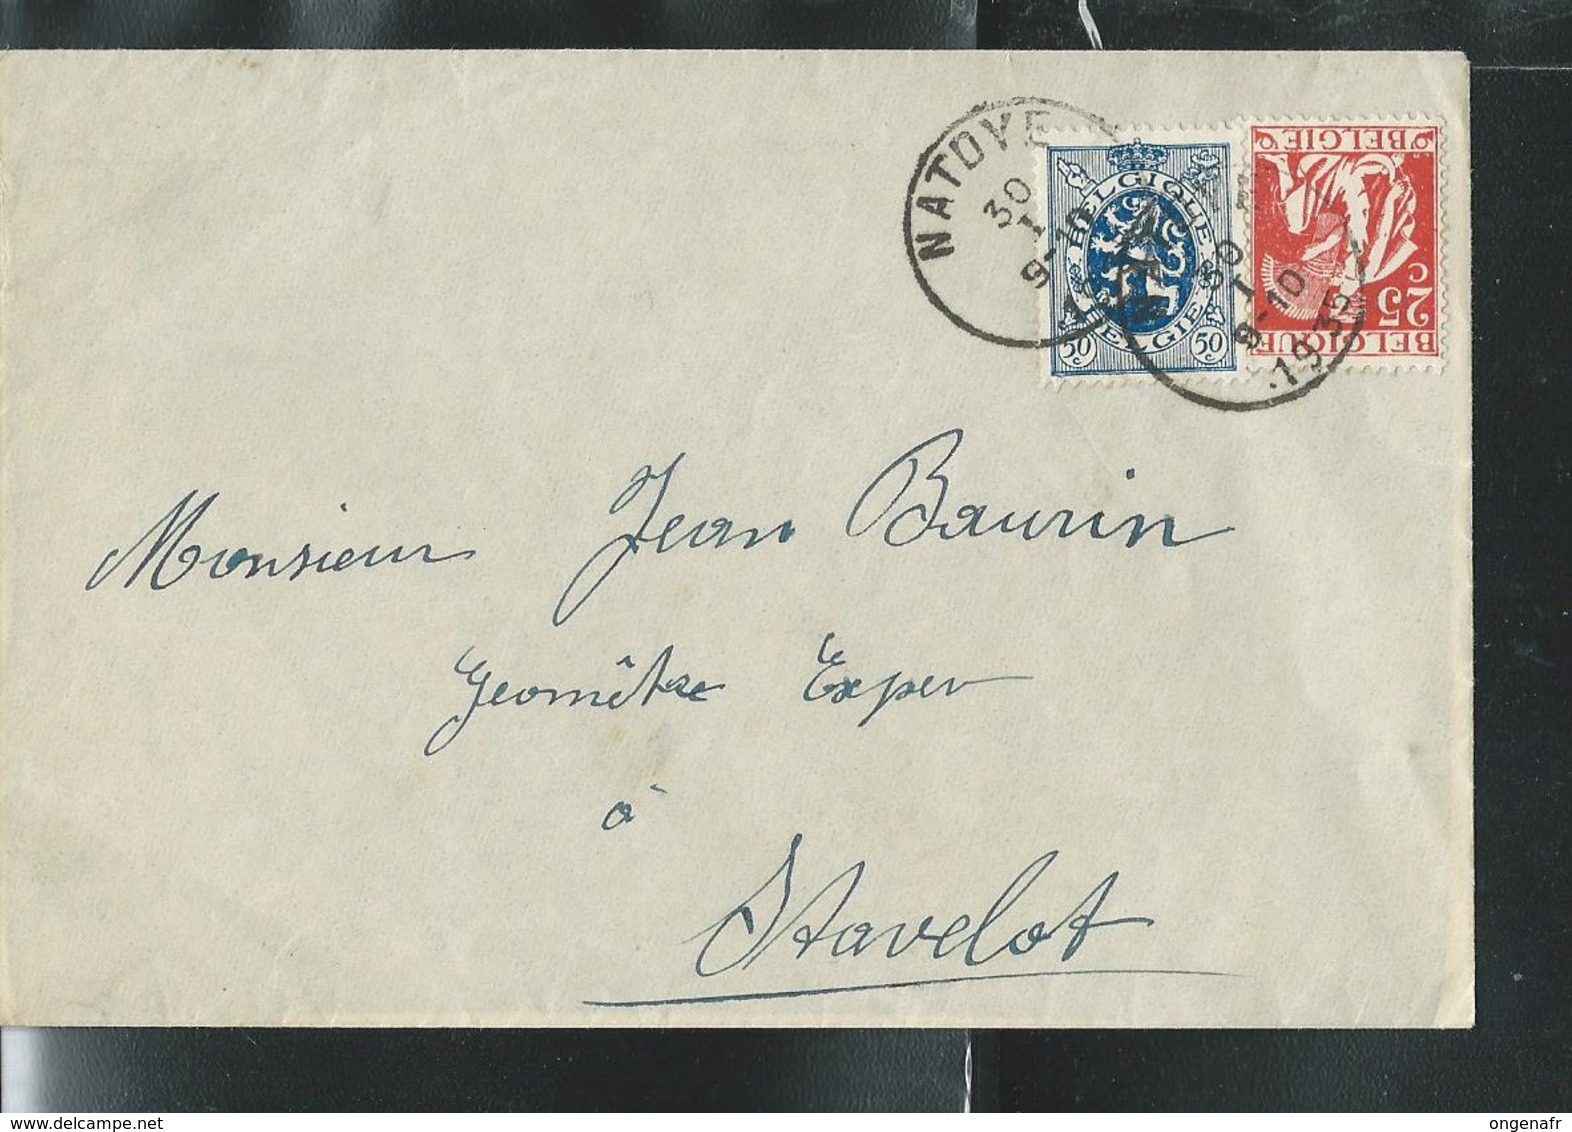 NATOYE
30
I
9-10
30
I
9-10
.1935
BELGIQUE
BELGIE
50 c
50 c
BELGIE
BELGIQUE
25 c
Monsieur Jean Baurin
Geomètre Exper
à
Stavelot
www.delcampe.net
ongenafr